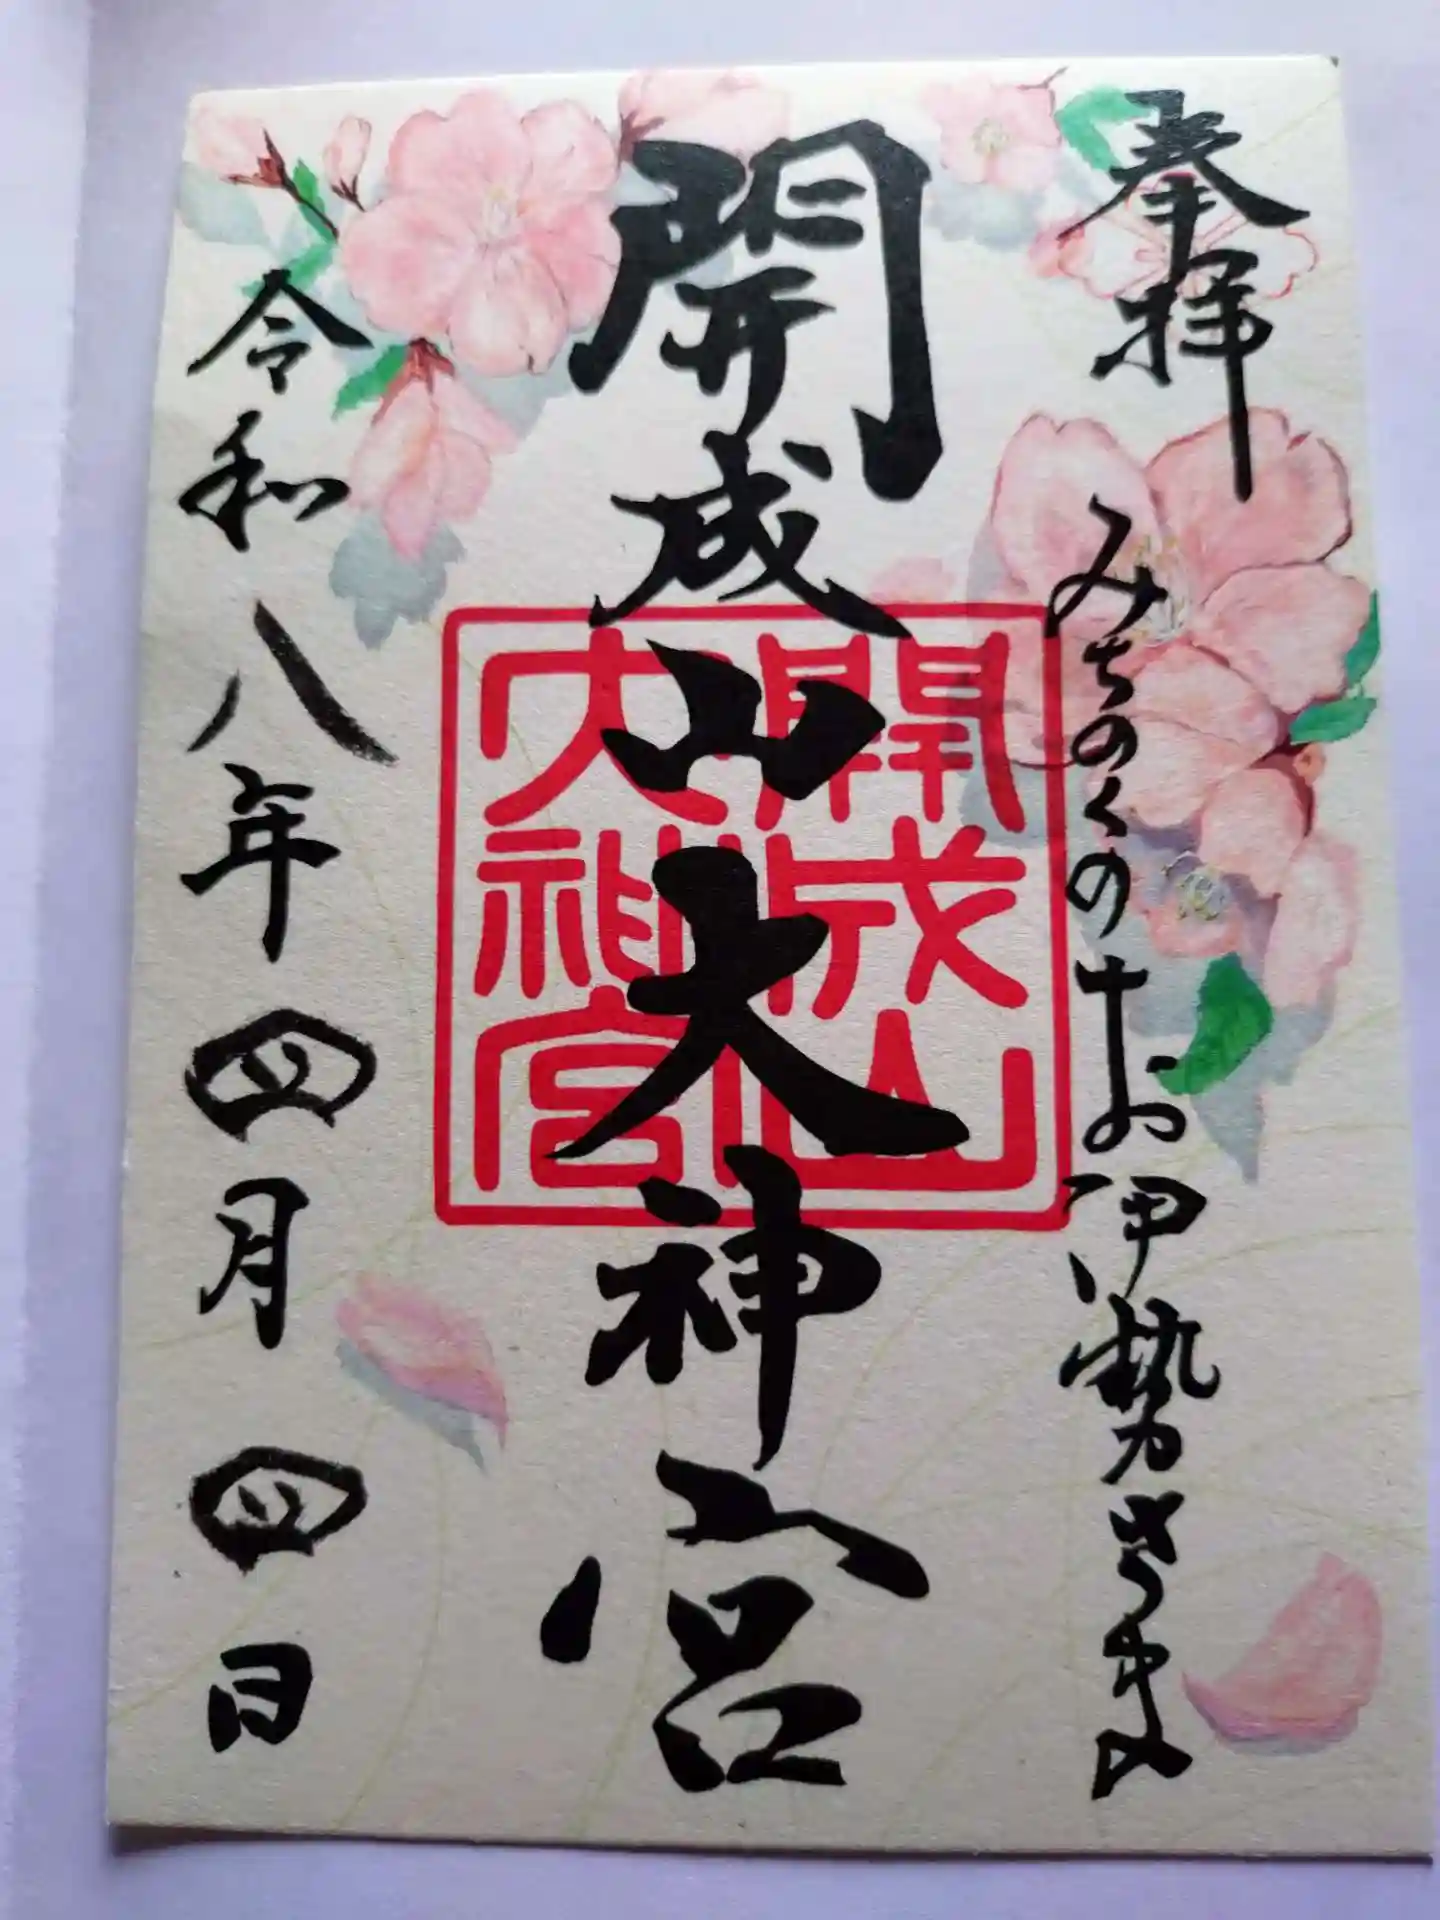 奉拝
みちのくのお伊勢さま
開成山大神宮
開成山
大神宮
令和八年四月四日